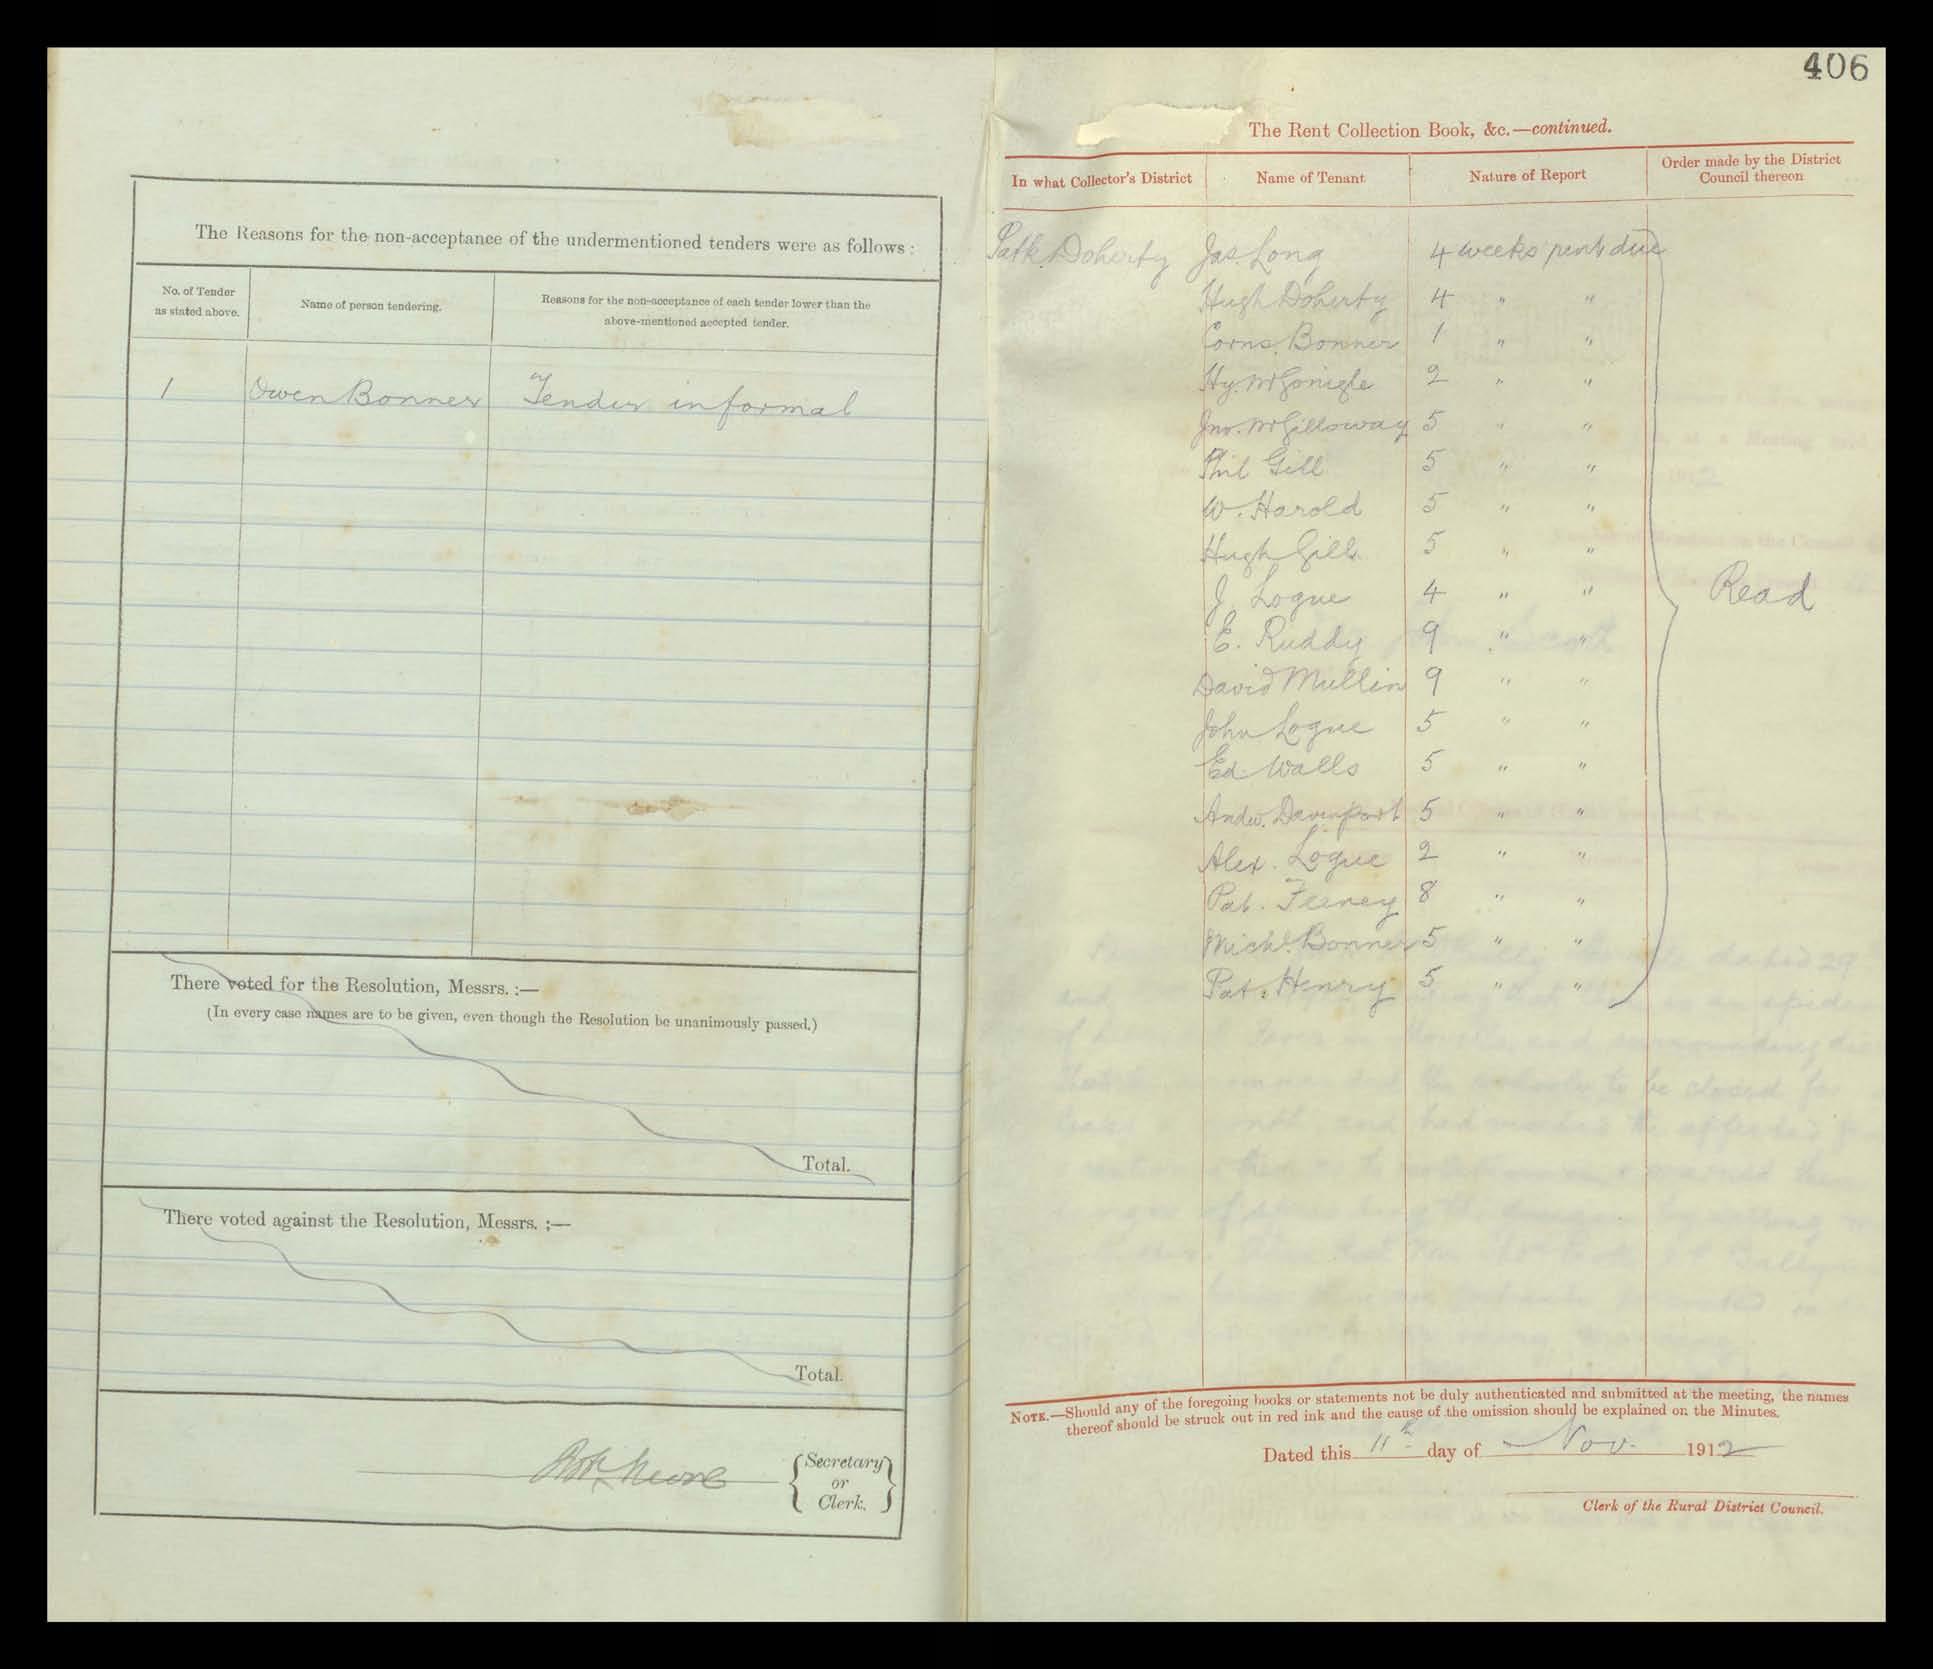 The Reasons for the non-acceptance of the undermentioned tenders were as follows :
No. of Tender as stated above.
Name of person tendering.
Reasons for the non-acceptance of each tender lower than the above-mentioned accepted tender.
1 Owen Bonner Tender informal
There voted for the Resolution, Messrs. :—
(In every case names are to be given, even though the Resolution be unanimously passed.)
Total.
There voted against the Resolution, Messrs. ;—
Total.
Secretary
or
Clerk.
406
The Rent Collection Book, &c.—continued.
In what Collector's District
Name of Tenant
Nature of Report
Order made by the District Council thereon
Patk. Doherty Jas. Long 4 weeks rent due
Hugh Doherty 4 " "
Corns. Bonner 1 " "
Hy. McGonigle 2 " "
Jno. McGilloway 5 " "
Phil Gill 5 " "
W. Harold 5 " "
Hugh Gill 5 " "
J. Logue 4 " "
Read
E. Ruddy 9 " "
David Mullin 9 " "
John Logue 5 " "
Ed. Walls 5 " "
Andw. Davenport 5 " "
Alex. Logue 2 " "
Pat. Feeney 8 " "
Michl. Bonner 5 " "
Pat. Henry 5 " "
NOTE.—Should any of the foregoing books or statements not be duly authenticated and submitted at the meeting, the names
thereof should be struck out in red ink and the cause of the omission should be explained on the Minutes.
Dated this 11th day of Nov. 1912
Clerk of the Rural District Council.